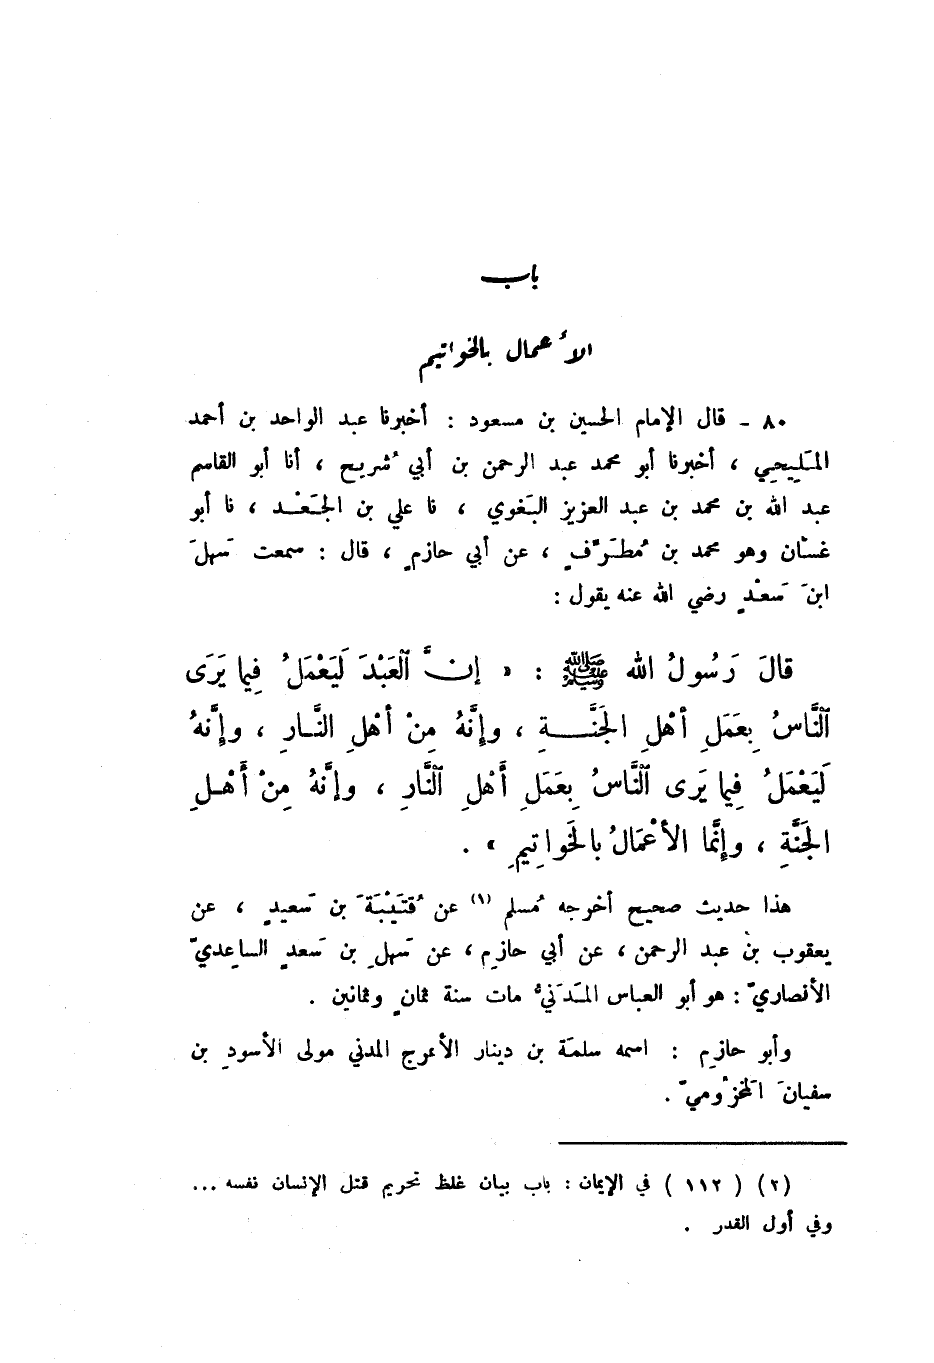 باب
الأعمال بالخواتيم
٨٠ ـ قال الإمام الحسين بن مسعود : أخبرنا عبد الواحد بن أحمد
المَليحي ، أخبرنا أبو محمد عبد الرحمن بن أبي شُريح ، أنا أبو القاسم
عبد الله بن محمد بن عبد العزيز البَغوي ، نا علي بن الجَعْد ، نا أبو
غسّان وهو محمد بن مُطَرِّفٍ ، عن أبي حازمٍ ، قال : سمعت سَهلَ
ابنَ سَعدٍ رضي الله عنه يقول :
قالَ رَسُولُ الله ﷺ : « إنَّ ٱلعَبْدَ لَيَعْمَلُ فِيما يَرَى
ٱلنَّاسُ بِعَمَلِ أهْلِ الجَنَّةِ ، وإنَّهُ مِنْ أهْلِ النَّارِ ، وإنَّهُ
لَيَعْمَلُ فِيما يَرى ٱلنَّاسُ بِعَمَلِ أَهْلِ ٱلنَّارِ ، وإنَّهُ مِنْ أَهْلِ
الجَنَّةِ ، وإنَّما الأعْمَالُ بالخَواتِيمِ » .
هذا حديث صحيح أخرجه مُسلم (١) عن قُتَيْبَةَ بن سَعيدٍ ، عن
يعقوب بن عبد الرحمن ، عن أبي حازمٍ ، عن سَهلِ بن سَعدٍ الساعِديّ
الأنصاريّ : هو أبو العباس المَدَنيُّ مات سنة ثمانٍ وثمانين .
وأبو حازمٍ : اسمه سلمَة بن دينار الأعرج المدني مولى الأسودِ بن
سفيانَ المَخْزُوميّ .
(٢) ( ١١٢ ) في الإيمان : باب بيان غلظ تحريم قتل الإنسان نفسه ...
وفي أول القدر .